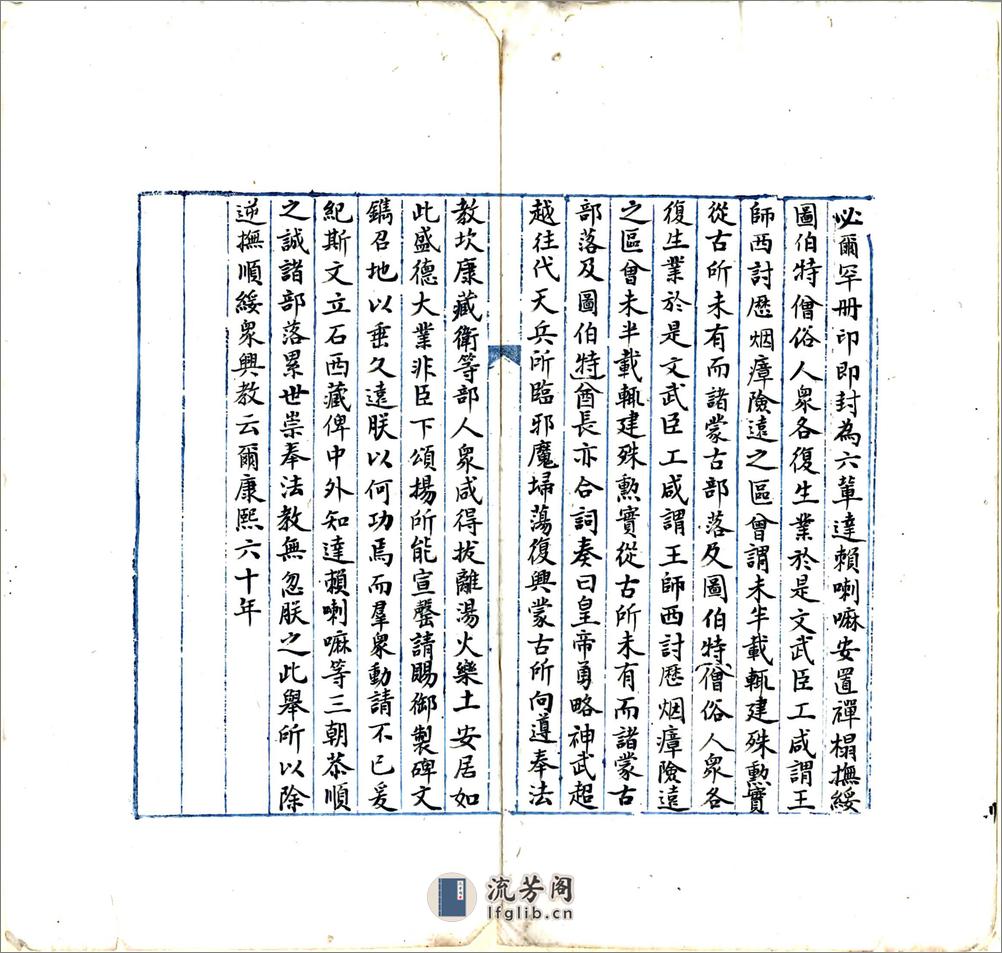 必爾罕册印即封為六輩達賴喇嘛安置禪榻撫綏
圖伯特僧俗人衆各復生業於是文武臣工咸謂王
師西討歷烟瘴險遠之區曾謂未半載輒建殊勲實
從古所未有而諸蒙古部落及圖伯特僧俗人衆各
復生業於是文武臣工咸謂王師西討歷烟瘴險遠
之區曾未半載輒建殊勲實從古所未有而諸蒙古
部落及圖伯特酋長亦合詞奏曰皇帝勇略神武超
越往代天兵所臨邪魔埽蕩復興蒙古所向導奉法
教坎康藏衛等部人衆咸得拔離湯火樂土安居如
此盛德大業非臣下頌揚所能宣罄請賜御製碑文
鐫召地以垂久遠朕以何功焉而羣衆動請不已爰
紀斯文立石西藏俾中外知達賴喇嘛等三朝恭順
之誠諸部落累世崇奉法教無忽朕之此舉所以除
逆撫順綏衆興教云爾康熙六十年
流芳阁
lfglib.cn